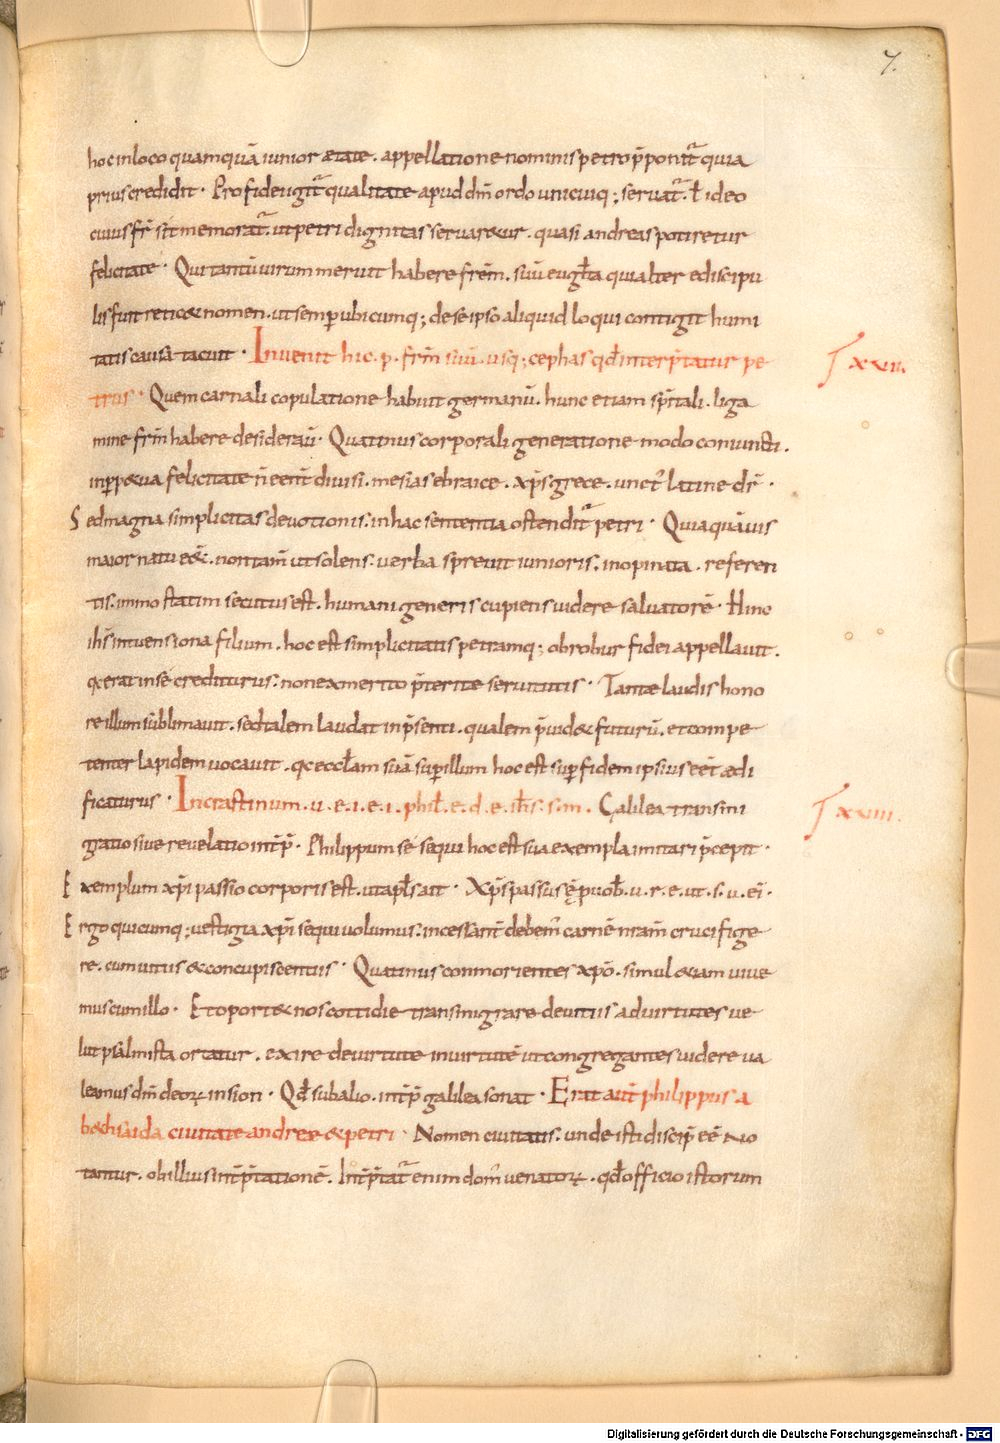 7.
hoc in loco quamquā iunior ætate. appellatione nominis petro p̄ponit᷑ quia
prius credidit. Pro fide igit᷑ qualitate apud dm̄ ordo unicuiq; seruat᷑. ł ideo
cuius fr̄ sīt memorat᷑. ut petri dignitas seruar&ur. quasi andreas potiretur
felicitate. Qui tantū uirum meruit habere fr̄em. suū eugl̄ta qui alter e discipu
lis fuit retic& nomen. ut semper ubicumq; de se ipso aliquid loqui contigit humi
tatis causa tacuit. Inuenit hic. p. fr̄m suū. usq; cephas qđ interp̄tatur pe
trus. Quem carnali copulatione habuit germanū. hunc etiam sp̄itali. liga
mine fr̄m habere desiderauī. Quatinus corporali generatione modo coniuncti.
in p̱p&ua felicitate n̄ eēnt diuisi. mesias ebraice. xp̄s grece. unct᷑ latine dr̄.
Sed magna simplicitas deuotionis. in hac sententia ostendit᷑ petri. Quia quāuis
maior natu e&̄. non tam̄ ut solens. uerba spreuit iunioris. inopinata. referen
tis. immo statim secutus est. humani generis cupiens uidere saluatorē. Hinc
ih̄s intuens iona filium. hoc est simplicitatis petramq; ob robur fidei appellauit.
q& erat in se crediturus. non ex merito p̄teritæ seruitutis. Tantæ laudis hono
re illum sublimauit. sed talem laudat in p̄senti. qualem p̄uid& futurū. et compe
tenter lapidem uocauit. q& eccl̄am suā sup̱ illum hoc est sup̱ fidem ipsius eēt ædi
ficaturus. In crastinum. u. e. i. e. i. phil̄. e. d. e. ih̄s. s. m. Galilea transmi
gratio siue reuelatio int̄p̄. Philippum se sequi hoc est sua exempla imitari p̄cepit.
Exemplum xp̄i passio corporis est. ut apl̄s ait. Xp̄s passus ē p̱ uob̄. u. r. e. ut. s. u. ei.
Ergo quicumq; uestigia xp̄i sequi uolumus. incessant̄ debem᷒ carnē nr̄am crucifige
re. cum uitiis & concupiscentiis. Quatinus conmorientes xp̄o. simul &iam uiue
mus cum illo. Et oport& nos cottidie transmigrare de uitiis ad uirtutes ue
lut psalmista ortatur. ex ire de uirtute in uirtutē ut congregantes uidere ua
leamus dm̄ deorꝝ in sion. Qđ sub alio. int̄p̄ galilea sonat. Erat aut̄ philippus a
b&hsaida ciuitate andreæ & petri. Nomen ciuitatis. unde isti discip̱ eē no
tantur. ob illius int̄p̄tationē. Int̄p̄tat᷑ enim dom᷒ uenatorꝝ. qđ officio istorum
T xxvii.
T xxviii.
Digitalisierung gefördert durch die Deutsche Forschungsgemeinschaft - DFG